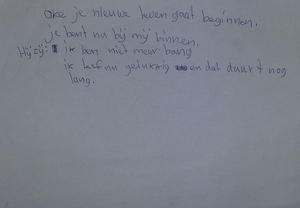 Oke je nieuwe leven gaat beginnen.
je bent nu bij mij binnen.
Hij/zij: ik ben niet meer bang
ik leef nu gelukkig en dat duurt nog
lang.